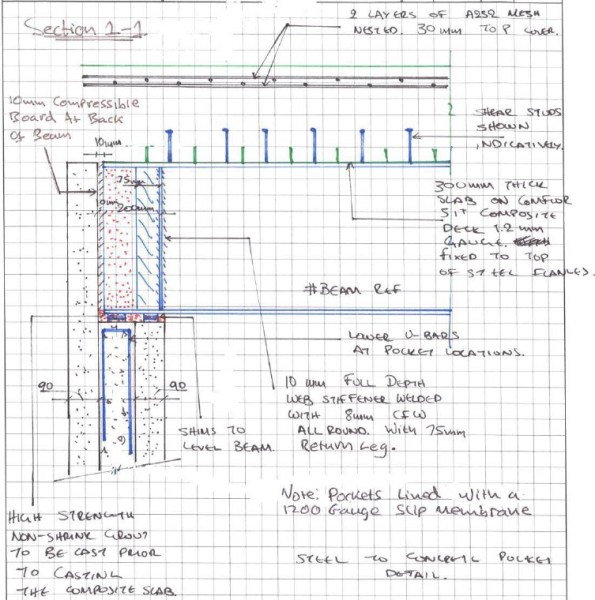 Section 1-1
2 LAYERS OF A252 MESH
NESTED. 30mm TOP COVER.
10mm Compressible
Board At Back
of Beam
10mm
SHEAR STUDS
SHOWN
INDICATIVELY.
75mm
10mm
200mm
300MM THICK
SLAB ON COMFLOR
51T COMPOSITE
DECK 1.2mm
GAUGE
FIXED TO TOP
OF STEEL FLANGES.
#BEAM REF
LOWER U-BARS
AT POCKET LOCATIONS.
90
90
10 mm FULL DEPTH
WEB STIFFENER WELDED
WITH 8mm CFW
ALL ROUND. With 75mm
Return Leg.
SHIMS TO
LEVEL BEAM
Note: Pockets Lined with a
1200 Gauge Slip Membrane
HIGH STRENGTH
NON-SHRINK GROUT
TO BE CAST PRIOR
TO CASTING
THE COMPOSITE SLAB.
STEEL TO CONCRETE POCKET
DETAIL.